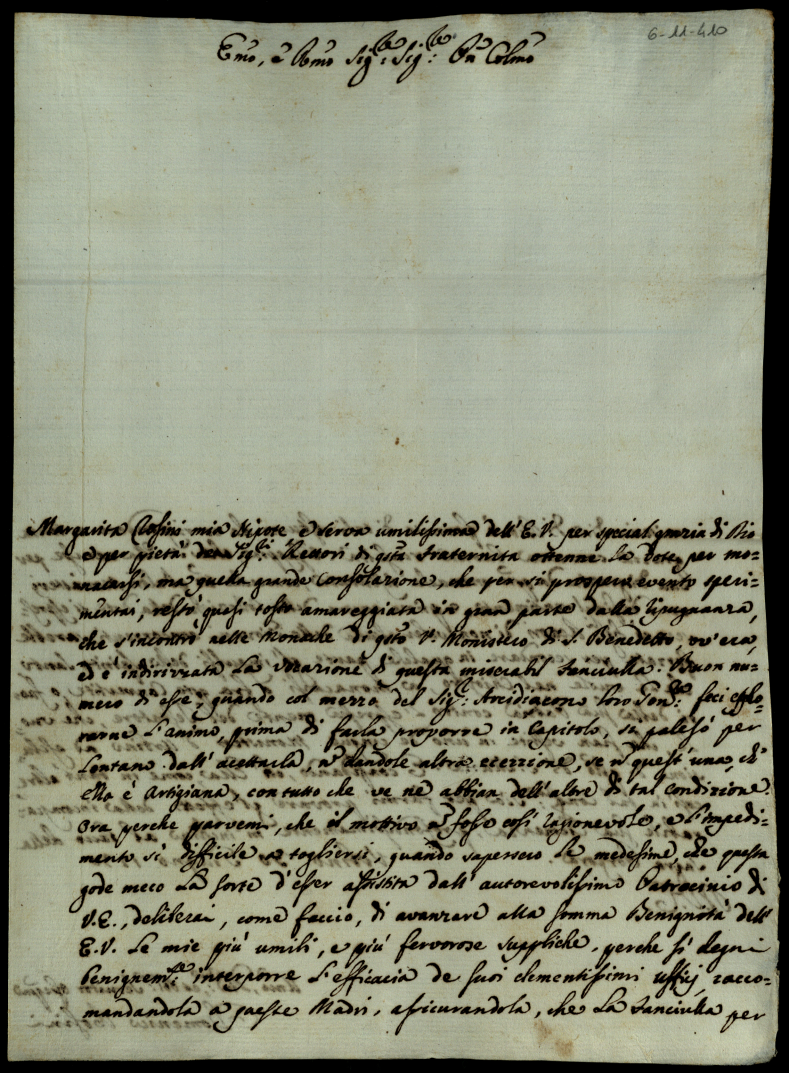 6-11-410
Emo, e Rmo Sig.re Sig.re Pñ Colmo
Margarita Rossini mia Nipote e serva umilissima dell'E.V. per special grazia di Dio
e per pietà de Sig.ri Rettori di qsta Fraternita ottenne la Dote per mo=
nacarsi, ma quella grande Consolazione, che per sì prospero evento speri=
mentai, restò quasi tosto amareggiata in gran parte dalla ripugnanza,
che s'incontrò nelle Monache di qsto V. Monistero di S. Benedetto, ov'era,
ed è indirizzata la vocazione di questa miserabil fanciulla. Buon nu=
mero di esse, quando col mezzo del Sig.r Arcidiacono loro Con.re feci esplo=
rarne l'animo, prima di farla proporre in Capitolo, si palesò per
lontano dall'accettarla, ñ dandole altra eccezzione, se ñ quest'una, ch'
ella è Artigiana, con tutto che ve ne abbian dell'altre di tal condizione.
Ora perche parvemi, che il mottivo ñ fosse così ragionevole, e l'impedi=
mento sì difficile a togliersi, quando sapessero le medesime, che questa
gode meco la sorte d'esser assistita dall'autorevolissimo Patrocinio di
V.E., deliberai, come faccio, di avanzare alla somma Benignità dell'
E.V. le mie più umili, e più fervorose suppliche, perche si degni
benignem.te interporre l'efficacia de suoi clementissimi uffizj, racco=
mandandola a queste Madri, assicurandola, che la Fanciulla per